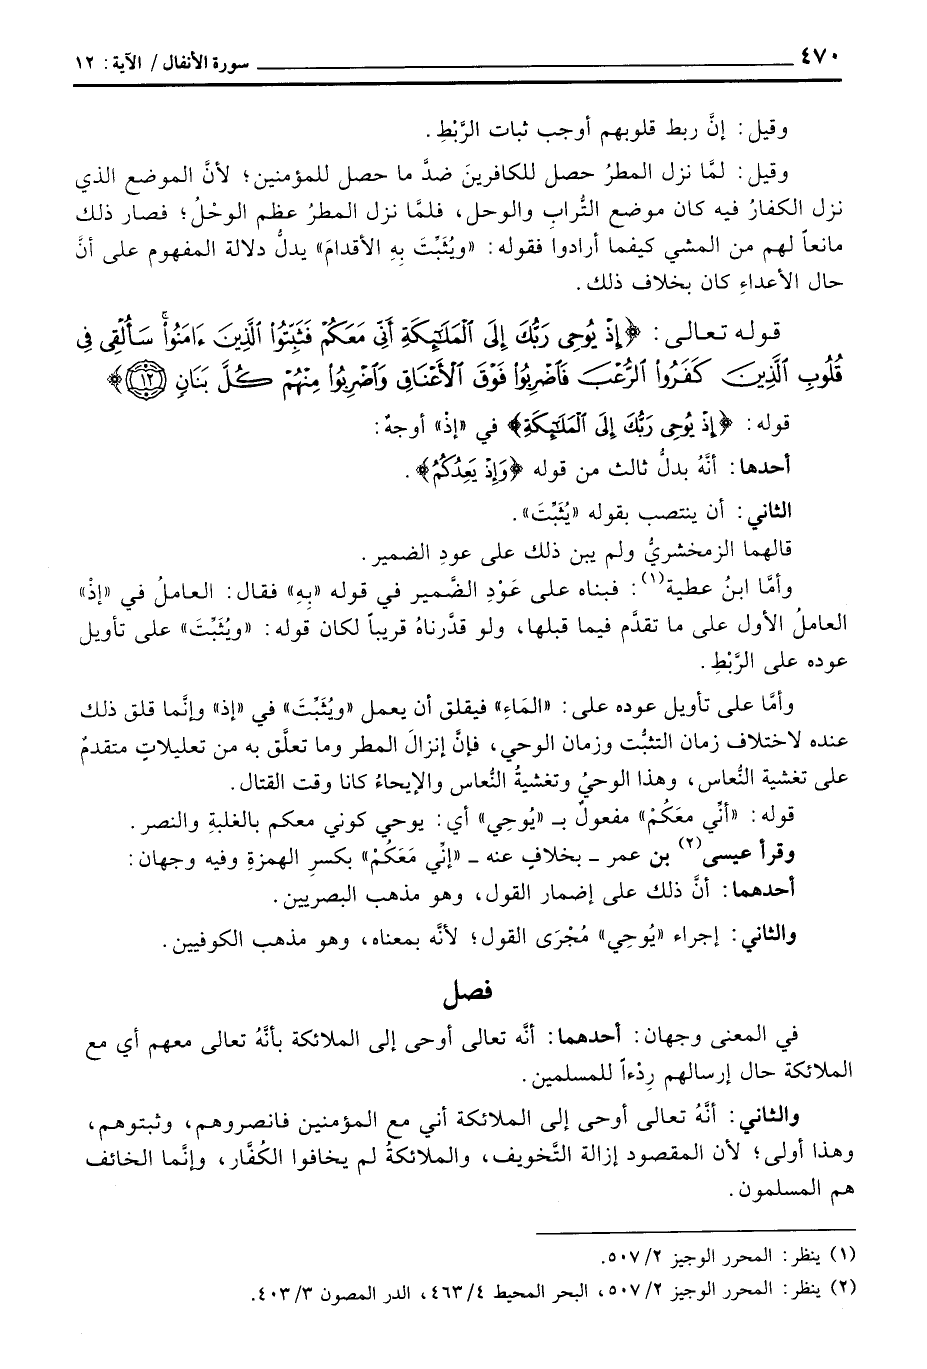 ٤٧٠ سورة الأنفال / الآية : ١٢
وقيل : إنَّ ربط قلوبهم أوجب ثبات الرَّبْطِ .
وقيل : لمَّا نزل المطرُ حصل للكافرينَ ضدَّ ما حصل للمؤمنين؛ لأنَّ الموضع الذي
نزل الكفارُ فيه كان موضع التُّرابِ والوحل، فلمَّا نزل المطرُ عظم الوحْلُ؛ فصار ذلك
مانعاً لهم من المشي كيفما أرادوا فقوله : «ويُثَبِّتَ بِهِ الأقدامَ» يدلُّ دلالة المفهوم على أنَّ
حال الأعداءِ كان بخلاف ذلك .
قوله تعالى : ﴿إِذْ يُوحِى رَبُّكَ إِلَى ٱلْمَلَٰٓئِكَةِ أَنِّى مَعَكُمْ فَثَبِّتُوا۟ ٱلَّذِينَ ءَامَنُوا۟ۚ سَأُلْقِى فِى
قُلُوبِ ٱلَّذِينَ كَفَرُوا۟ ٱلرُّعْبَ فَٱضْرِبُوا۟ فَوْقَ ٱلْأَعْنَاقِ وَٱضْرِبُوا۟ مِنْهُمْ كُلَّ بَنَانٍ ١٢﴾
قوله : ﴿إِذْ يُوحِى رَبُّكَ إِلَى ٱلْمَلَٰٓئِكَةِ﴾ في «إذْ» أوجهٌ :
أحدها : أنَّهُ بدلٌ ثالث من قوله ﴿وَإِذْ يَعِدُكُمُ﴾ .
الثاني : أن ينتصب بقوله «يُثَبِّتَ» .
قالهما الزمخشريُّ ولم يبن ذلك على عودِ الضمير .
وأمَّا ابنُ عطية(١) : فبناه على عَوْدِ الضَّمير في قوله «بِهِ» فقال : العاملُ في «إذْ»
العاملُ الأول على ما تقدَّم فيما قبلها، ولو قدَّرناهُ قريباً لكان قوله : «ويُثَبِّتَ» على تأويل
عوده على الرَّبْطِ .
وأمَّا على تأويل عوده على : «المَاءِ» فيقلق أن يعمل «ويُثَبِّتَ» في «إذ» وإنَّما قلق ذلك
عنده لاختلاف زمان التثبُّت وزمان الوحي، فإنَّ إنزالَ المطر وما تعلَّق به من تعليلاتٍ متقدمٌ
على تغشية النُّعاس، وهذا الوحيُ وتغشيةُ النُّعاس والإيحاءُ كانا وقت القتال .
قوله : «أنِّي مَعَكُمْ» مفعولٌ بـ «يُوحِي» أي : يوحي كوني معكم بالغلبةِ والنصر .
وقرأ عيسى(٢) بن عمر - بخلافٍ عنه - «إنِّي مَعَكُمْ» بكسرِ الهمزةِ وفيه وجهان :
أحدهما : أنَّ ذلك على إضمار القول، وهو مذهب البصريين .
والثاني : إجراء «يُوحِي» مُجْرَى القول؛ لأنَّه بمعناه، وهو مذهب الكوفيين .
فصل
في المعنى وجهان : أحدهما : أنَّه تعالى أوحى إلى الملائكة بأنَّهُ تعالى معهم أي مع
الملائكة حال إرسالهم رِدْءاً للمسلمين .
والثاني : أنَّهُ تعالى أوحى إلى الملائكة أني مع المؤمنين فانصروهم، وثبتوهم،
وهذا أولى؛ لأن المقصود إزالة التَّخويف، والملائكةُ لم يخافوا الكُفَّار، وإنَّما الخائف
هم المسلمون .
(١) ينظر : المحرر الوجيز ٢/٥٠٧.
(٢) ينظر : المحرر الوجيز ٢/٥٠٧، البحر المحيط ٤/٤٦٣، الدر المصون ٣/٤٠٣.